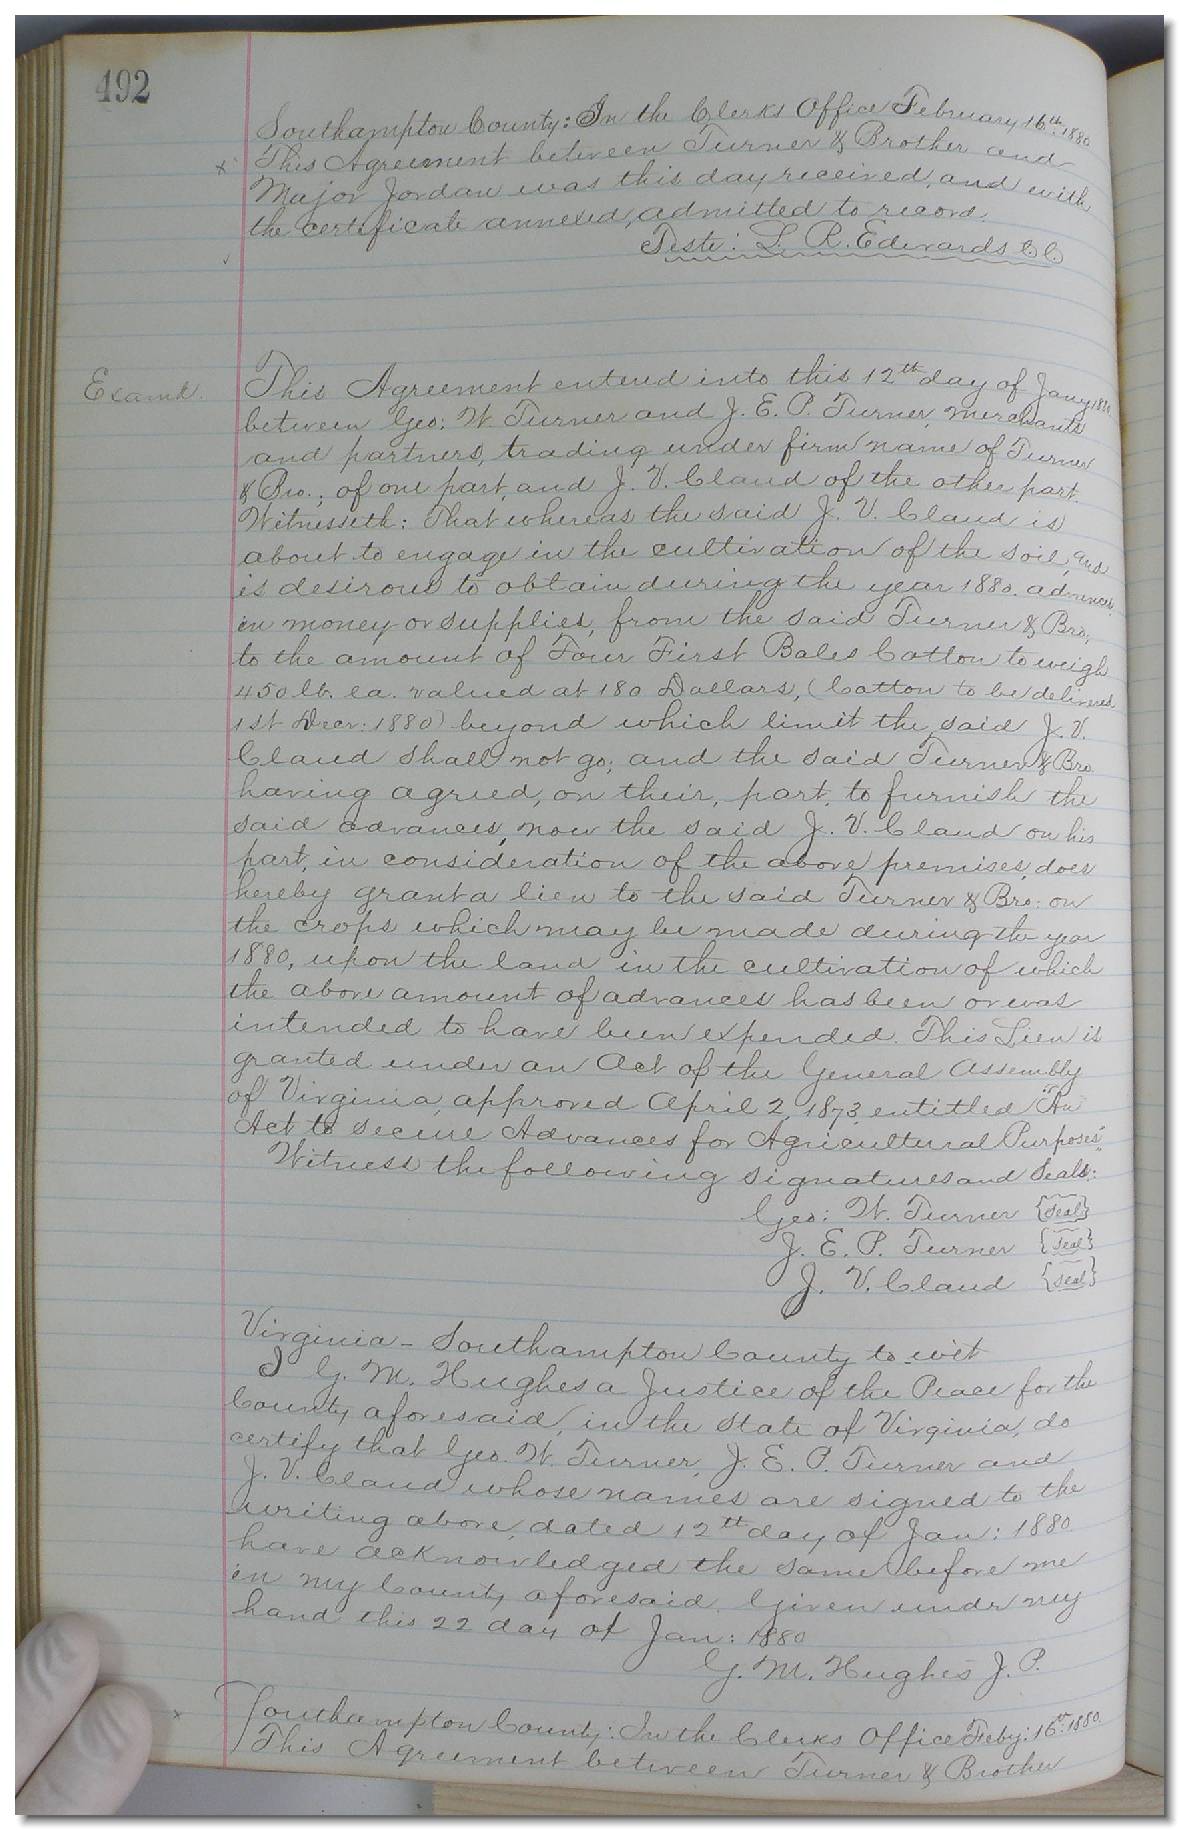 492
Southampton County: In the Clerks Office February 16th 1880
This Agreement between Turner & Brother and
Major Jordan was this day received, and with
the certificate annexed, admitted to record.
Teste: L. R. Edwards C.C.
Examd.
This Agreement entered into this 12th day of Jany 1880
between Geo: W. Turner and J. E. P. Turner, merchants
and partners, trading under firm name of Turner
& Bro., of one part, and J. V. Claud of the other part.
Witnesseth: That whereas the said J. V. Claud is
about to engage in the cultivation of the soil, and
is desirous to obtain during the year 1880. advances
in money or supplies, from the said Turner & Bro,
to the amount of Four First Bales Cotton to weigh
450 lb. ea. valued at 180 Dollars, (Cotton to be delivered
1st Decr: 1880) beyond which limit the said J. V.
Claud shall not go; and the said Turner & Bro
having agreed, on their, part, to furnish the
said advances, now the said J. V. Claud on his
part, in consideration of the above premises, does
hereby grant a lien to the said Turner & Bro: on
the crops which may be made during the year
1880, upon the land in the cultivation of which
the above amount of advances has been or was
intended to have been expended. This Lien is
granted under an Act of the General Assembly
of Virginia, approved April 2, 1873, entitled "An
Act to secure Advances for Agricultural Purposes"
Witness the following signatures and Seals:
Geo: W. Turner {seal}
J. E. P. Turner {seal}
J. V. Claud {seal}
Virginia - Southampton County to wit
I G. M. Hughes a Justice of the Peace for the
County aforesaid, in the State of Virginia, do
certify that Geo. W. Turner, J. E. P. Turner and
J. V. Claud whose names are signed to the
writing above, dated 12th day of Jan: 1880
have acknowledged the same before me
in my County aforesaid. Given under my
hand this 22 day of Jan: 1880
G. M. Hughes J. P.
Southampton County: In the Clerks Office Feby: 16th 1880.
This Agreement between Turner & Brother